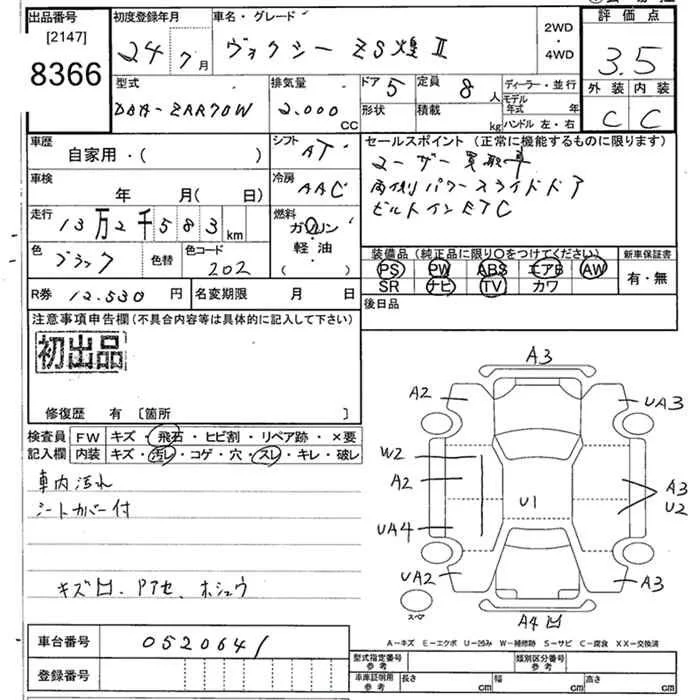 出品番号 初度登録年月 車名・グレード 2WD 評価点
[2147] 24年 7月 ヴォクシー ZS煌Ⅱ ・ 3.5
8366 4WD
型式 排気量 ドア 5 定員 8人 ディーラー・並行 外装 内装
DBA-ZRR70W 2.000CC 形状 積載 kg モデル年式 年 C C
ハンドル 左・右
車歴 自家用・( ) シフト AT セールスポイント (正常に機能するものに限ります)
ユーザー買取車
車検 年 月(日) 冷房 AAC 両側パワースライドドア
ビルトインETC
走行 13万2千583km 燃料 ガソリン
軽油
( )
色 ブラック 色替 色コード 202 装備品 (純正品に限り○をつけてください) 新車保証書
PS PW ABS エアB AW 有・無
SR ナビ TV カワ
R券 12.530円 名変期限 月 日 後日品
注意事項申告欄 (不具合内容等は具体的に記入して下さい)
初出品
修復歴 有 [箇所 ]
検査員 FW キズ・飛石・ヒビ割・リペア跡・×要
記入欄 内装 キズ・汚レ・コゲ・穴・スレ・キレ・破レ
車内汚れ
シートカバー付
キズ凹、アセ、ホシュウ
A3
A2 UA3
W2
A2 U1 A3
U2
UA4
UA2 A3
スペア A4凹
A-キズ E-エクボ U-凹み W-補修跡 S-サビ C-腐食 XX-交換済
車台番号 0520641
登録番号
型式指定番号 参考 類別区分番号 参考
車庫証明用 参考 長さ cm 幅 cm 高さ cm